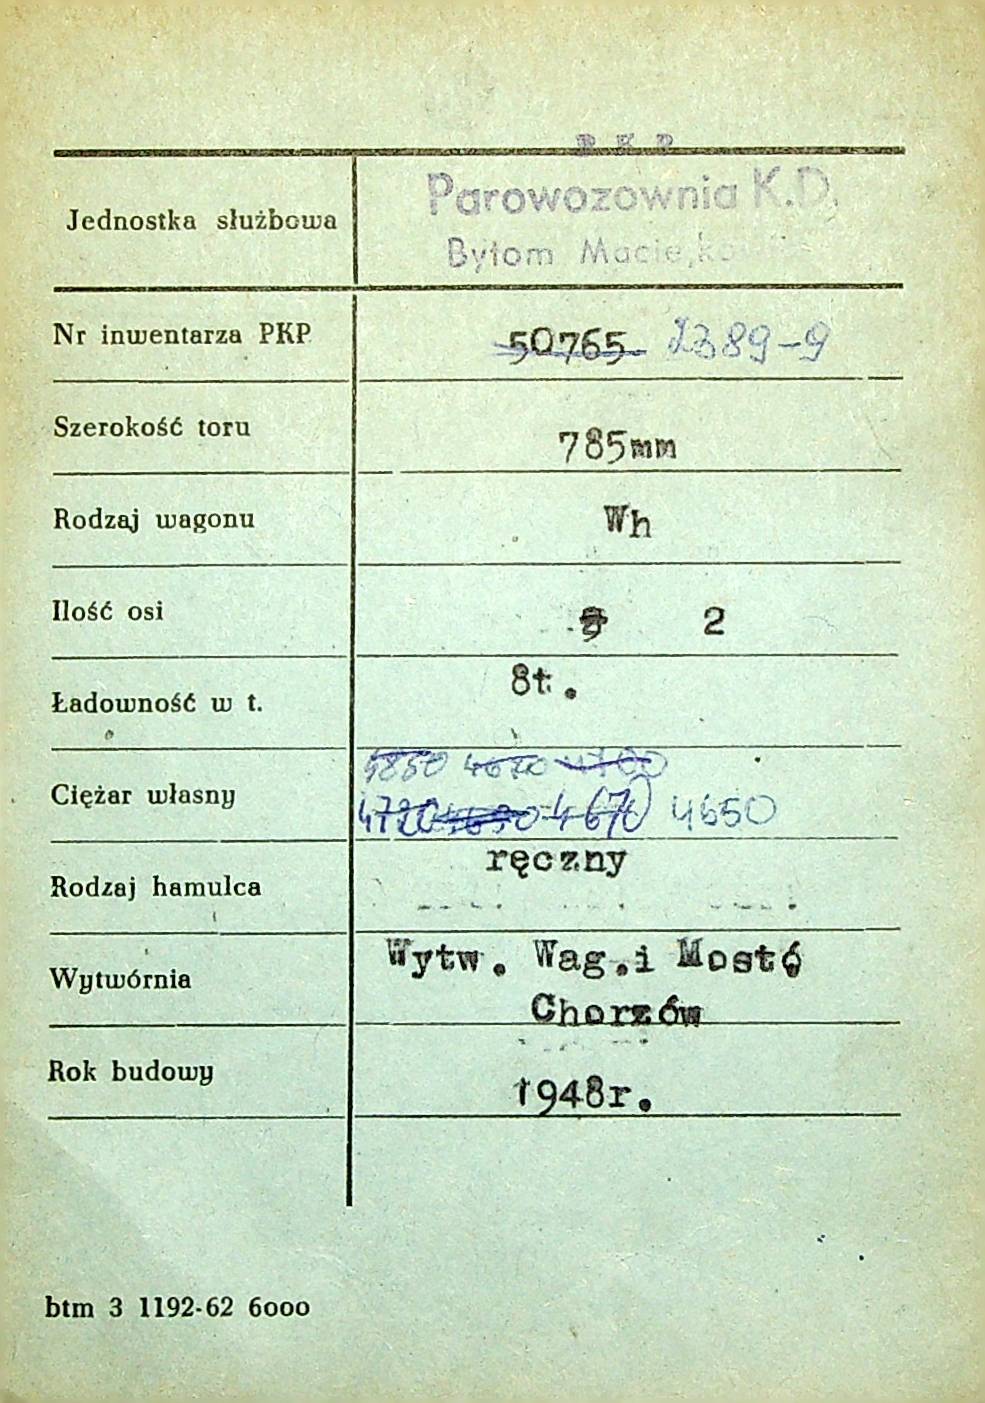 P K P
Jednostka służbowa Parowozownia K.D.
Bytom
Nr inwentarza PKP 50765 2389-9
Szerokość toru 785mm
Rodzaj wagonu Wh
Ilość osi 2
Ładowność w t. 8t.
Ciężar własny 4850 4700
4720 4670 4650
Rodzaj hamulca ręczny
Wytwórnia Wytw. Wag.i Mostó
Chorzów
Rok budowy 1948r.
btm 3 1192-62 6000